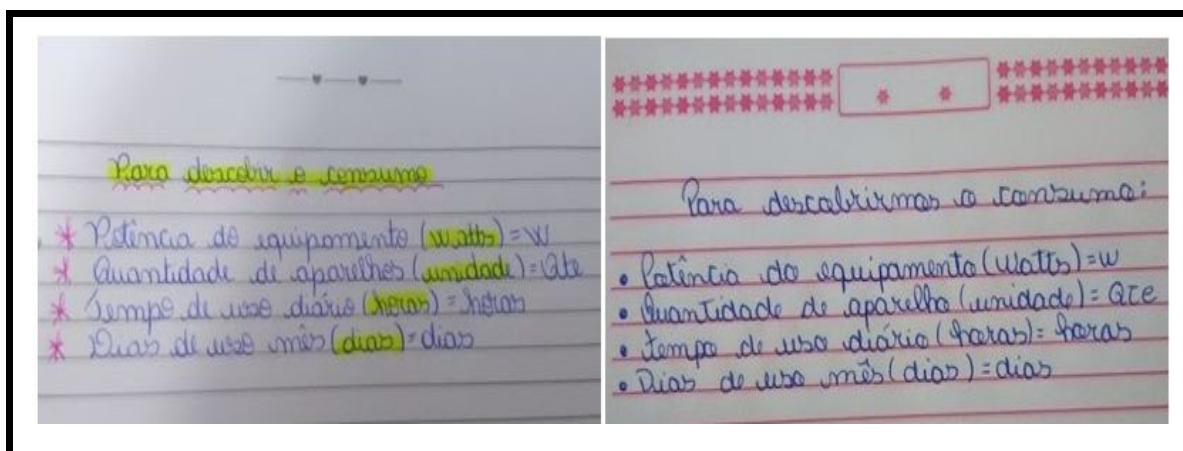 Para descobrir o consumo
* Potência do equipamento (watts) = W
* Quantidade de aparelhos (unidade) = Qte
* Tempo de uso diário (horas) = horas
* Dias de uso mês (dias) = dias
Para descobrirmos o consumo:
• Potência do equipamento (Watts) = w
• Quantidade de aparelho (unidade) = QTe
• tempo de uso diário (horas) = horas
• Dias de uso mês (dias) = dias